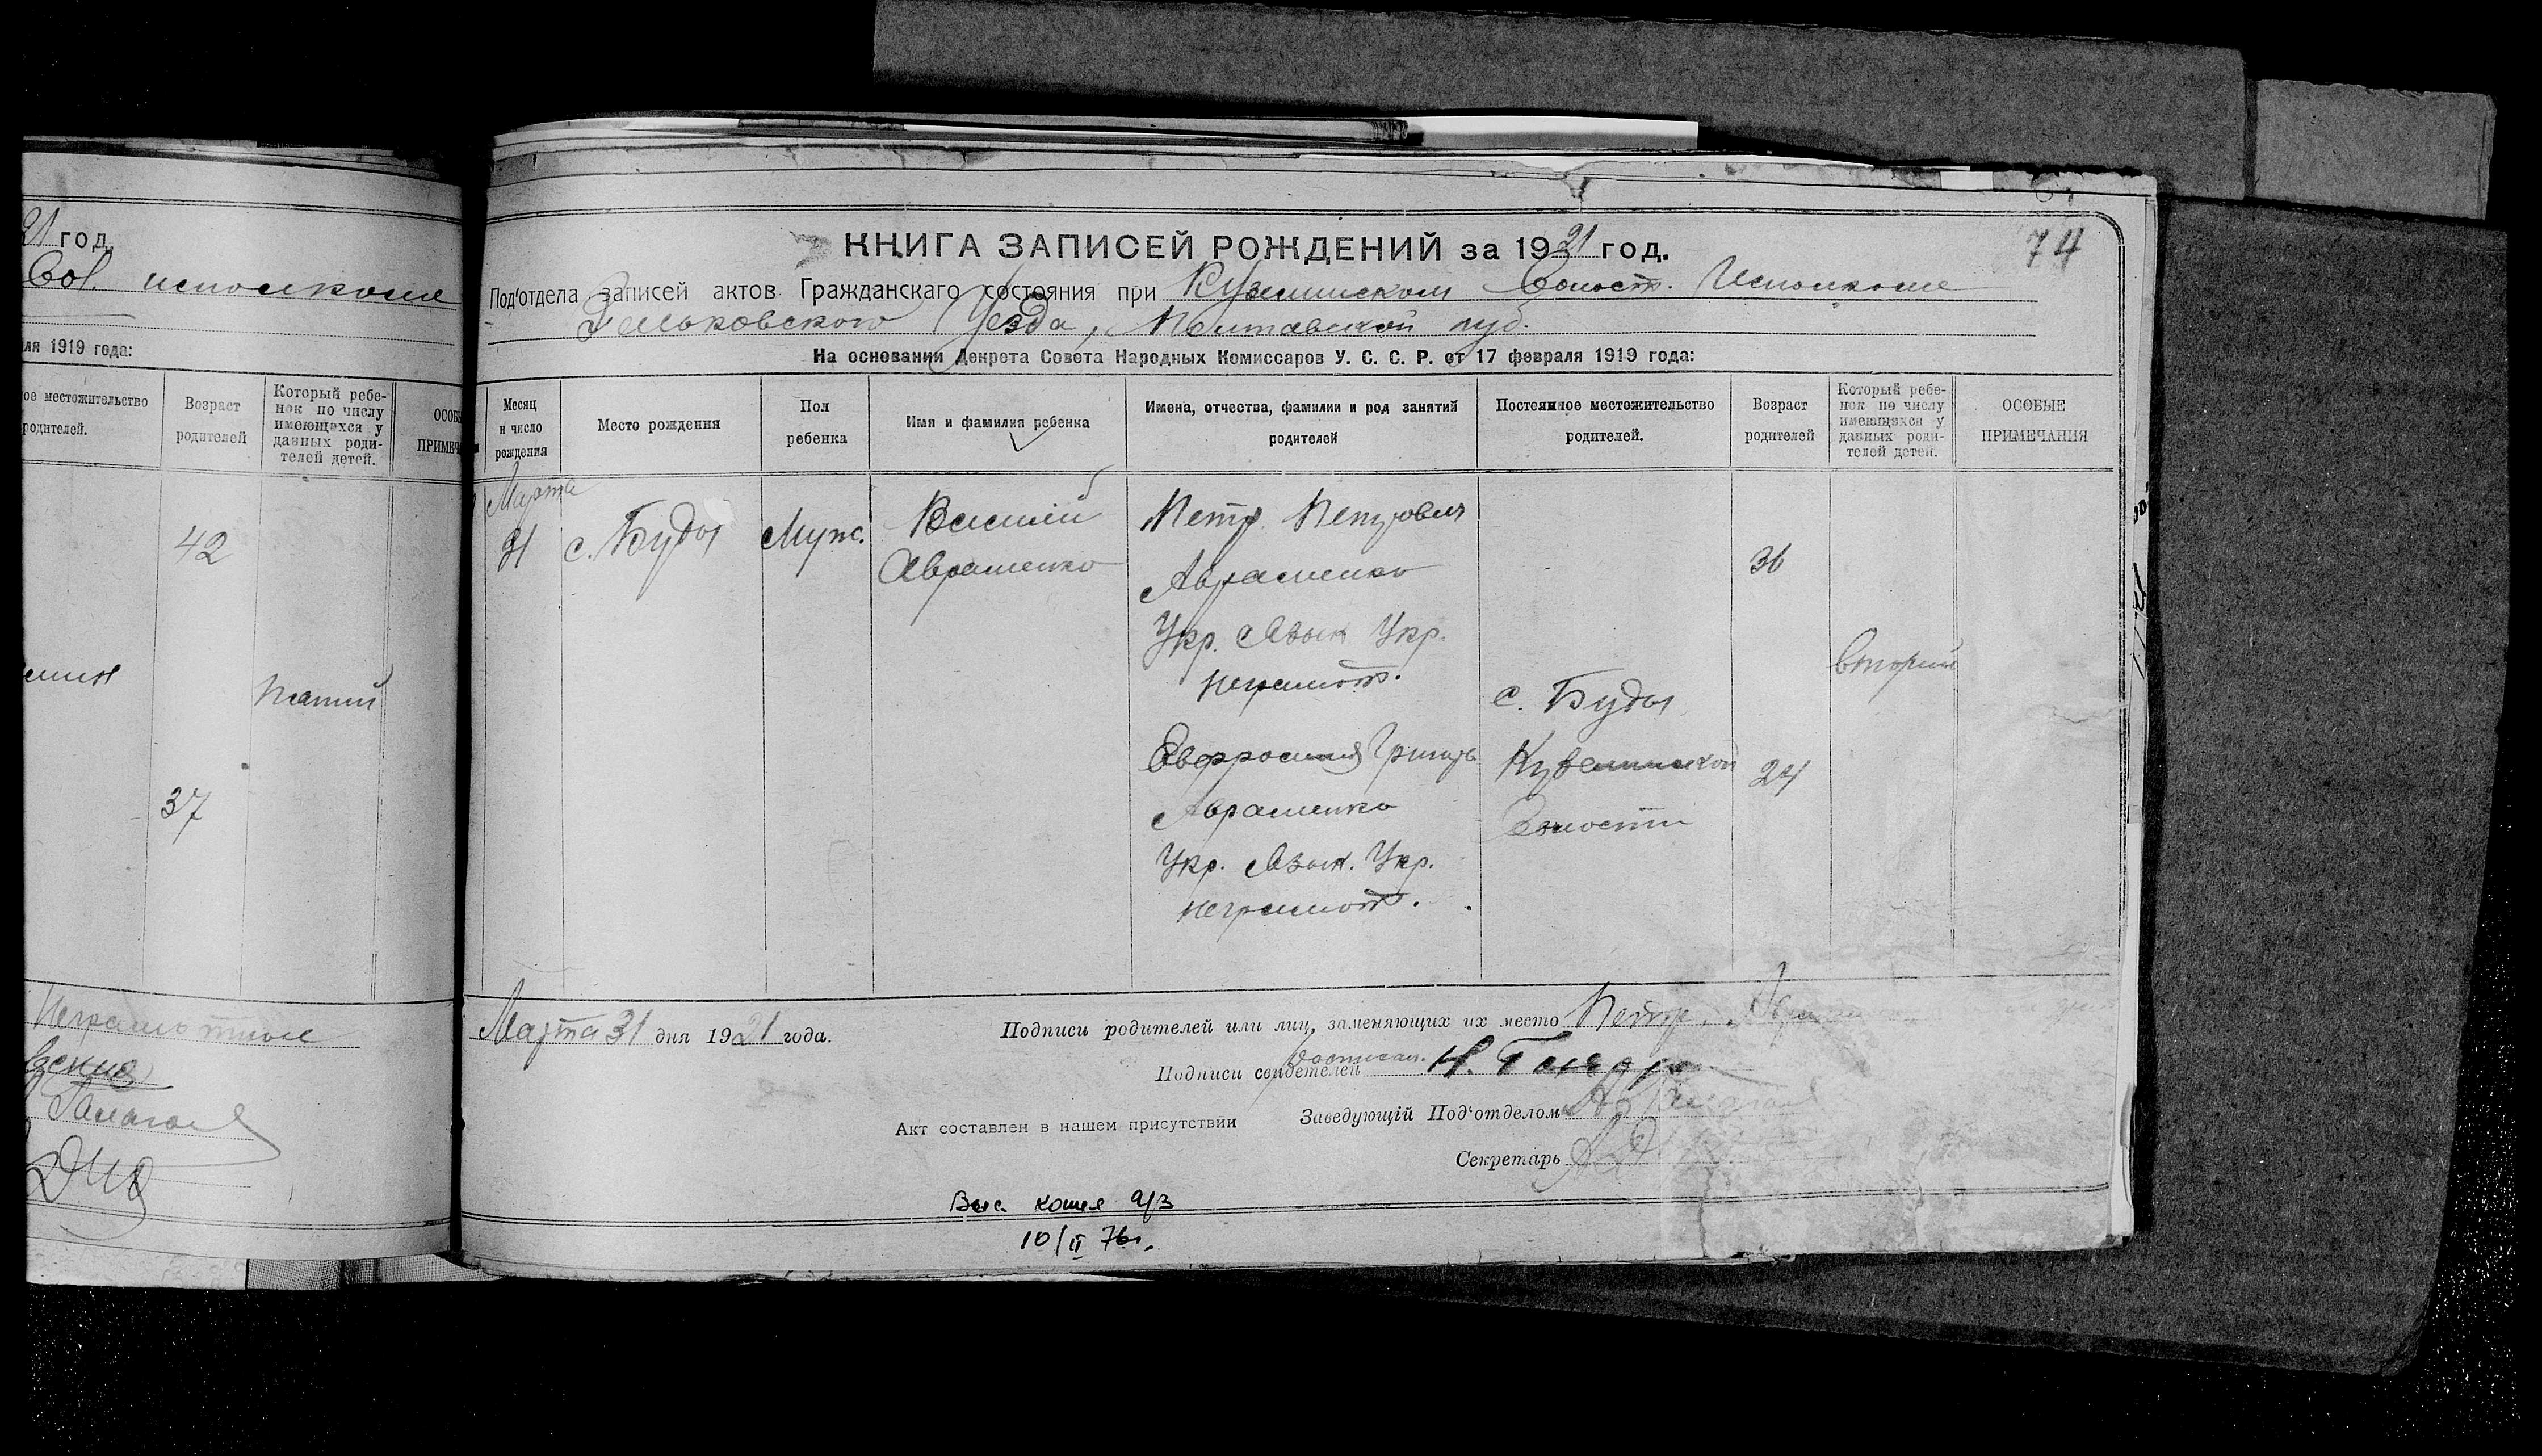 21 год.
Вол. исполкоме
ля 1919 года:
ое местожительство
родителей.
Возраст
родителей
Который ребе-
нок по числу
имеющихся у
данных роди-
телей детей.
ОСОБЫ
ПРИМЕЧА
42
37
Неграмотные
74
КНИГА ЗАПИСЕЙ РОЖДЕНИЙ за 1921 год.
Под'отдела записей актов Гражданскаго состояния при Куземинском Волост. Исполкоме
Зеньковского Уезда, Полтавской губ.
На основании Декрета Совета Народных Комиссаров У. С. С. Р. от 17 февраля 1919 года:
Месяц
и число
рождения
Место рождения
Пол
ребенка
Имя и фамилия ребенка
Имена, отчества, фамилии и род занятий
родителей
Постоянное местожительство
родителей.
Возраст
родителей
Который ребе-
нок по числу
имеющихся у
данных роди-
телей детей.
ОСОБЫЕ
ПРИМЕЧАНИЯ
Марта
31
с. Буды
Муж.
Василий
Авраменко
Петр Петрович
Авраменко
Укр. Язык Укр.
неграмот.
Евфросиния Григор
Авраменко
Укр. Язык. Укр.
неграмот.
с. Буды
Куземинской
Волости
36
24
второй
Марта 31 дня 1921 года.
Подписи родителей или лиц, заменяющих их место Петр
Подписи свидетелей Н. Гончар
Акт составлен в нашем присутствии
Заведующій Под'отделом
Секретарь
Выс. копия а/з
10/II 76г.